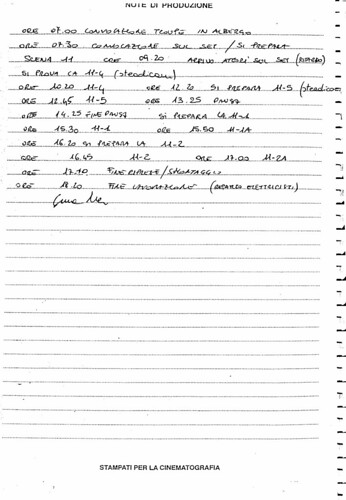 NOTE DI PRODUZIONE
ORE 07.00 CONVOCAZIONE TROUPE IN ALBERGO
ORE 07.30 CONVOCAZIONE SUL SET / SI PREPARA
SCENA 11 ORE 09.20 ARRIVO ATTORI SUL SET (RITARDO)
SI PROVA LA 11-4 (steadicam)
ORE 10.20 11-4 ORE 12.20 SI PREPARA 11-5 (steadicam
ORE 12.45 11-5 ORE 13.25 PAUSA
ORE 14.25 FINE PAUSA SI PREPARA LA 11-1
ORE 15.30 11-1 ORE 15.50 11-1A
ORE 16.20 SI PREPARA LA 11-2
ORE 16.45 11-2 ORE 17.00 11-2A
ORE 17.10 FINE RIPRESE / SMONTAGGIO
ORE 18.20 FINE LAVORAZIONE (REPARTO ELETTRICISTI)
STAMPATI PER LA CINEMATOGRAFIA